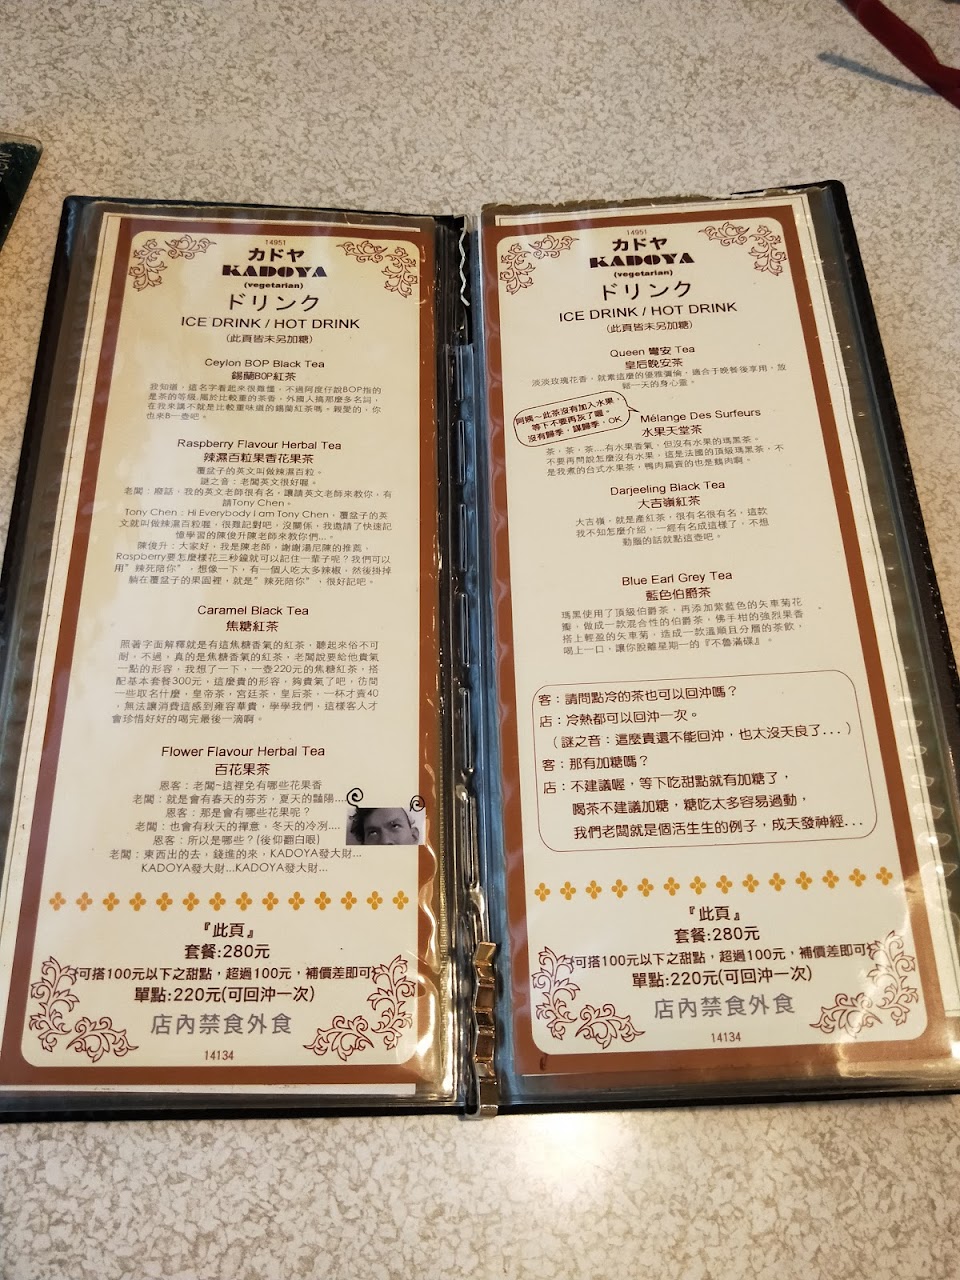 14951
カドヤ
KADOYA
(vegetarian)
ドリンク
ICE DRINK / HOT DRINK
(此頁皆未另加糖)
Ceylon BOP Black Tea
錫蘭BOP紅茶
我知道，這名字看起來很難懂，不過阿度仔說BOP指的
是茶的等級,屬於比較重的茶香，外國人搞那麼多名詞，
在我來講不就是比較重味道的錫蘭紅茶嗎。親愛的，你
也來B一壺吧。
Raspberry Flavour Herbal Tea
辣濕百粒果香花果茶
覆盆子的英文叫做辣濕百粒。
謎之音：老闆英文很好喔。
老闆：廢話，我的英文老師很有名，讓請英文老師來教你，有
請Tony Chen。
Tony Chen：Hi Everybody I am Tony Chen，覆盆子的英
文就叫做辣濕百粒喔，很難記對吧，沒關係，我邀請了快速記
憶學習的陳俊升陳老師來教你們...。
陳俊升：大家好，我是陳老師，謝謝湯尼陳的推薦，
Raspberry要怎麼樣花三秒鐘就可以記住一輩子呢？我們可以
用”辣死陪你”，想像一下，有一個人吃太多辣椒，然後掛掉
躺在覆盆子的果園裡，就是”辣死陪你”，很好記吧。
Caramel Black Tea
焦糖紅茶
照著字面解釋就是有這焦糖香氣的紅茶，聽起來俗不可
耐，不過，真的是焦糖香氣的紅茶，老闆說要給他貴氣
一點的形容，我想了一下，一壺220元的焦糖紅茶，搭
配基本套餐300元，這麼貴的形容，夠貴氣了吧，彷間
一些取名什麼，皇帝茶，宮廷茶，皇后茶，一杯才賣40
，無法讓消費這感到雍容華貴，學學我們，這樣客人才
會珍惜好好的喝完最後一滴啊。
Flower Flavour Herbal Tea
百花果茶
恩客：老闆~這裡免有哪些花果香
老闆：就是會有春天的芬芳，夏天的豔陽....
恩客：那是會有哪些花果呢？
老闆：也會有秋天的禪意，冬天的冷冽....
恩客：所以是哪些？(後仰翻白眼)
老闆：東西出的去，錢進的來，KADOYA發大財...
KADOYA發大財...KADOYA發大財...
『此頁』
套餐:280元
可搭100元以下之甜點，超過100元，補價差即可
單點:220元(可回沖一次)
店內禁食外食
14134
14951
カドヤ
KADOYA
(vegetarian)
ドリンク
ICE DRINK / HOT DRINK
(此頁皆未另加糖)
Queen 彎安 Tea
皇后晚安茶
淡淡玫瑰花香，就素這麼的優雅彌倫，適合于晚餐後享用，放
鬆一天的身心靈。
阿姨～此茶沒有加入水果，
等下不要再灰了喔。
沒有歸季，謀歸季，OK
Mélange Des Surfeurs
水果天堂茶
茶，茶，茶....有水果香氣，但沒有水果的瑪黑茶。
不要再問說怎麼沒有水果，這是法國的頂級瑪黑茶，不
是我煮的台式水果茶，鴨肉扁賣的也是鵝肉啊。
Darjeeling Black Tea
大吉嶺紅茶
大吉嶺，就是產紅茶，很有名很有名，這款
我不知怎麼介紹，一經有名成這樣了，不想
動腦的話就點這壺吧。
Blue Earl Grey Tea
藍色伯爵茶
瑪黑使用了頂級伯爵茶，再添加紫藍色的矢車菊花
瓣，做成一款混合性的伯爵茶，佛手柑的強烈果香
搭上輕盈的矢車菊，造成一款溫順且分層的茶飲，
喝上一口，讓你脫離星期一的『不魯滿碟』。
客：請問點冷的茶也可以回沖嗎？
店：冷熱都可以回沖一次。
（謎之音：這麼貴還不能回沖，也太沒天良了...）
客：那有加糖嗎？
店：不建議喔，等下吃甜點就有加糖了，
喝茶不建議加糖，糖吃太多容易過動，
我們老闆就是個活生生的例子，成天發神經...
『此頁』
套餐:280元
可搭100元以下之甜點，超過100元，補價差即可
單點:220元(可回沖一次)
店內禁食外食
14134